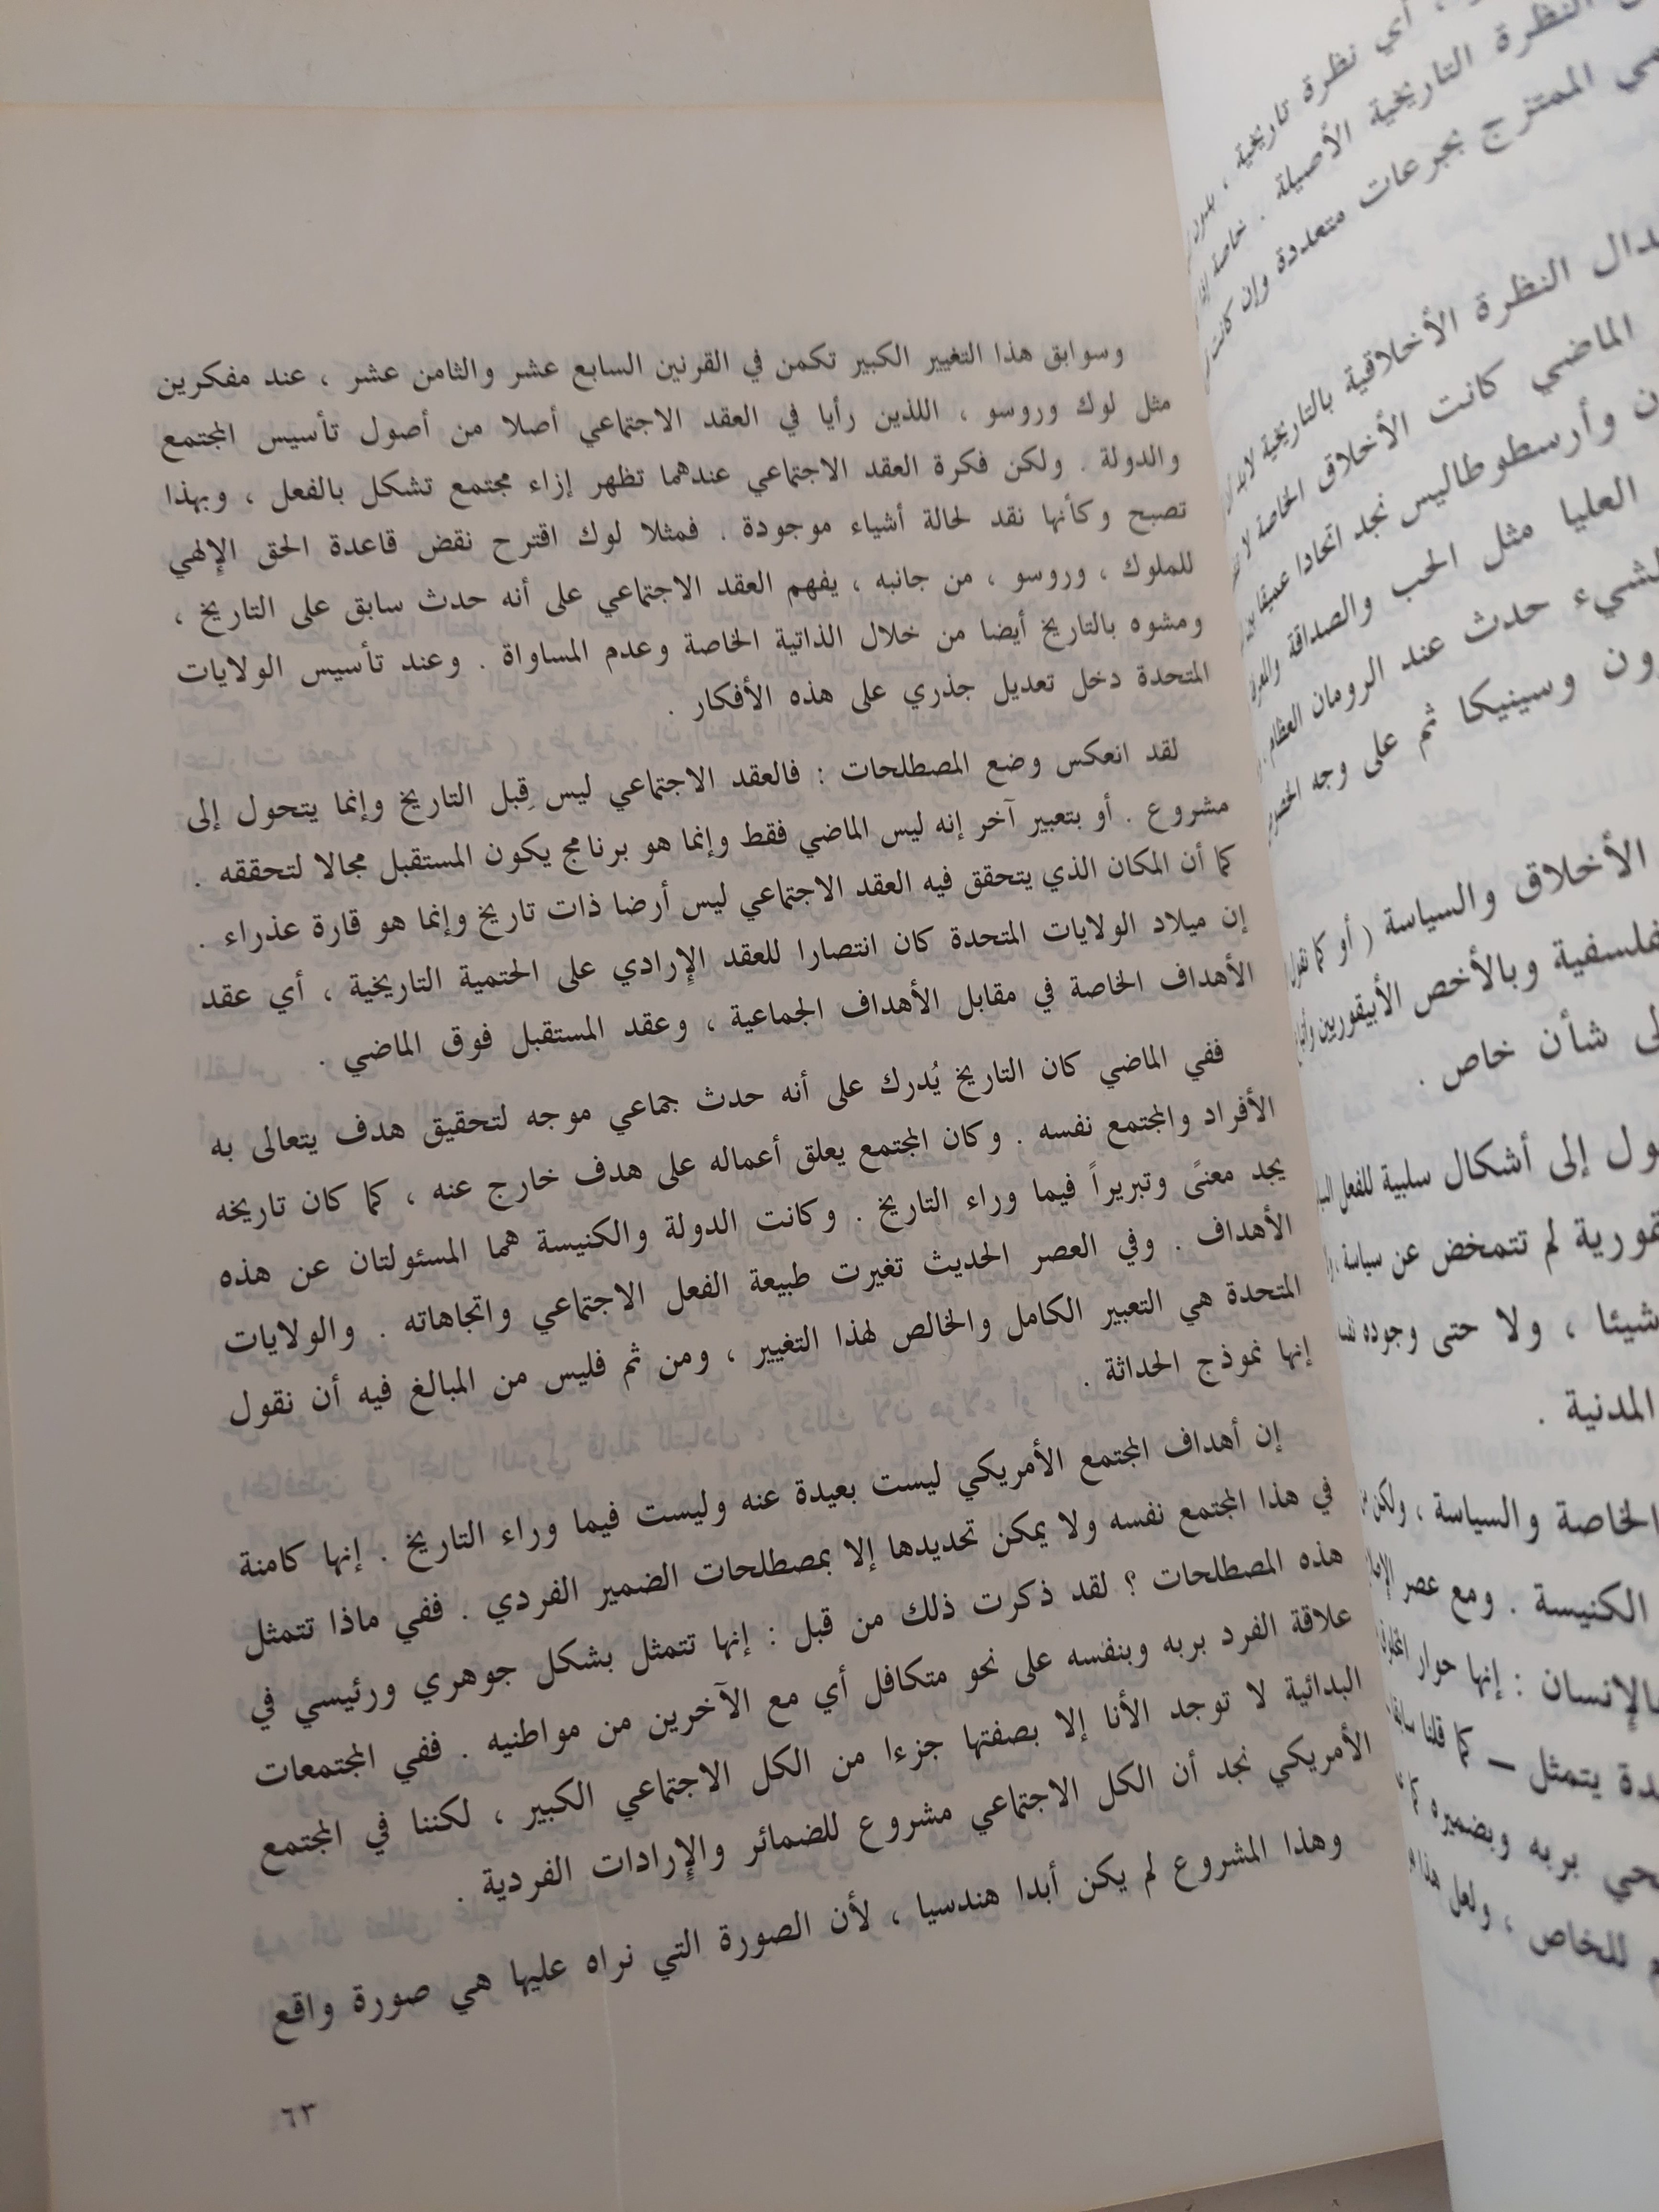 ، أي نظرة تاريخية ، بدون
النظرة التاريخية الأصيلة . خاصة
الممتزج بجرعات متعددة وإن كانت
النظرة الأخلاقية بالتاريخية لابد
الماضي كانت الأخلاق الخاصة لا
وأرسطوطاليس نجد اتحادا عميقا
العليا مثل الحب والصداقة
حدث عند الرومان العظام
وسينيكا ثم على وجه
الأخلاق والسياسة ( أو كما نقول
وبالأخص الأبيقوريين
شأن خاص .
إلى أشكال سلبية للفعل
لم تتمخض عن سياسة ،
شيئا ، ولا حتى وجوده
المدنية .
الخاصة والسياسة ، ولكن
الكنيسة . ومع عصر
بالإنسان : إنها حوار
يتمثل – كما قلنا سابقا
بربه وبضميره
للخاص ، ولعل هذا
وسوابق هذا التغيير الكبير تكمن في القرنين السابع عشر والثامن عشر ، عند مفكرين
مثل لوك وروسو ، اللذين رأيا في العقد الاجتماعي أصلا من أصول تأسيس المجتمع
والدولة . ولكن فكرة العقد الاجتماعي عندهما تظهر إزاء مجتمع تشكل بالفعل ، وبهذا
تصبح وكأنها نقد لحالة أشياء موجودة . فمثلا لوك اقترح نقض قاعدة الحق الإلهي
للملوك ، وروسو ، من جانبه ، يفهم العقد الاجتماعي على أنه حدث سابق على التاريخ ،
ومشوه بالتاريخ أيضا من خلال الذاتية الخاصة وعدم المساواة . وعند تأسيس الولايات
المتحدة دخل تعديل جذري على هذه الأفكار .
لقد انعكس وضع المصطلحات : فالعقد الاجتماعي ليس قِبل التاريخ وإنما يتحول إلى
مشروع . أو بتعبير آخر إنه ليس الماضي فقط وإنما هو برنامج يكون المستقبل مجالا لتحققه .
كما أن المكان الذي يتحقق فيه العقد الاجتماعي ليس أرضا ذات تاريخ وإنما هو قارة عذراء .
إن ميلاد الولايات المتحدة كان انتصارا للعقد الإرادي على الحتمية التاريخية ، أي عقد
الأهداف الخاصة في مقابل الأهداف الجماعية ، وعقد المستقبل فوق الماضي .
ففي الماضي كان التاريخ يُدرك على أنه حدث جماعي موجه لتحقيق هدف يتعالى به
الأفراد والمجتمع نفسه . وكان المجتمع يعلق أعماله على هدف خارج عنه ، كما كان تاريخه
يجد معنىً وتبريراً فيما وراء التاريخ . وكانت الدولة والكنيسة هما المسئولتان عن هذه
الأهداف . وفي العصر الحديث تغيرت طبيعة الفعل الاجتماعي واتجاهاته . والولايات
المتحدة هي التعبير الكامل والخالص لهذا التغيير ، ومن ثم فليس من المبالغ فيه أن نقول
إنها نموذج الحداثة .
إن أهداف المجتمع الأمريكي ليست بعيدة عنه وليست فيما وراء التاريخ . إنها كامنة
في هذا المجتمع نفسه ولا يمكن تحديدها إلا بمصطلحات الضمير الفردي . ففي ماذا تتمثل
هذه المصطلحات ؟ لقد ذكرت ذلك من قبل : إنها تتمثل بشكل جوهري ورئيسي في
علاقة الفرد بربه وبنفسه على نحو متكافل أي مع الآخرين من مواطنيه . ففي المجتمعات
البدائية لا توجد الأنا إلا بصفتها جزءا من الكل الاجتماعي الكبير ، لكننا في المجتمع
الأمريكي نجد أن الكل الاجتماعي مشروع للضمائر والإرادات الفردية .
وهذا المشروع لم يكن أبدا هندسيا ، لأن الصورة التي نراه عليها هي صورة واقع
٦٣